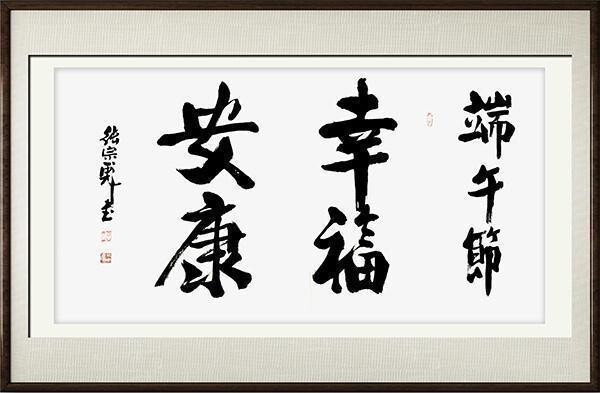 端午節
幸福
安康